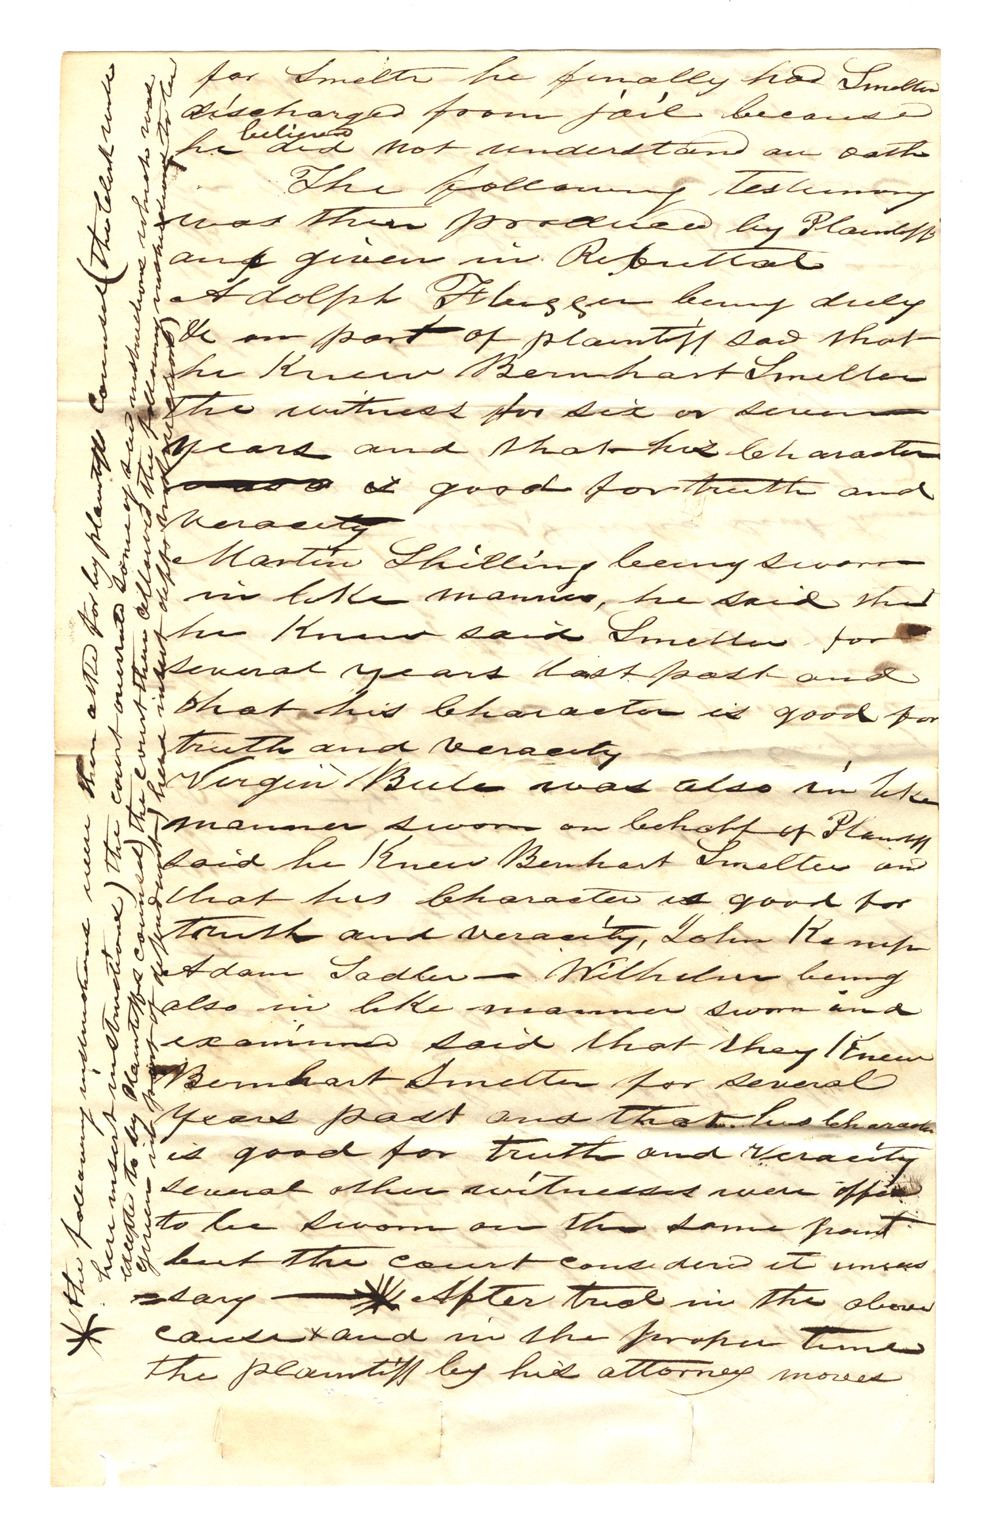 for Smelter he finally had Smelter
discharged from jail because
he believed did not understand an oath
The following testimony
was then produced by Plaintiff
and given in Rebuttal
Adolph Flugger being duly
&c on part of plaintiff said that
he Knew Bernhart Smelter
the witness for six or seven
years and that his Character
is good for truth and
veracity
Martin Shilling being sworn
in like manner, he said that
he Knew said Smelter for
several years last past and
that his Character is good for
truth and veracity
Virgin Bule was also in like
manner sworn on behalf of Plaintiff
said he Knew Bernhart Smelter and
that his Character is good for
truth and veracity, John Kemp
Adam Sadler — Wilhelm being
also in like manner sworn and
examined said that they Knew
Bernhart Smelter for several
years past and that his Character
is good for truth and veracity
several other witnesses were offered
to be sworn on the same point
but the court considered it unneces
=sary — * After trial in the above
cause x and in the proper time
the plaintiff by his attorney moves
* the following instructions were then asked for by plaintiffs Counsel (the Clerk will
here insert instructions) the court overruled some of said instructions which was
excepted to by Plaintiffs counsel) the court then allowed the following
given on part of defendant) here insert defts instructions)